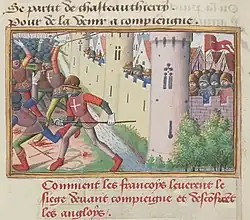 Se partit de chasteauthierry
pour de la venir a compiengne.
Comment les francoys leverent le
siege devant compiegne et desconfirēt
les angloys.